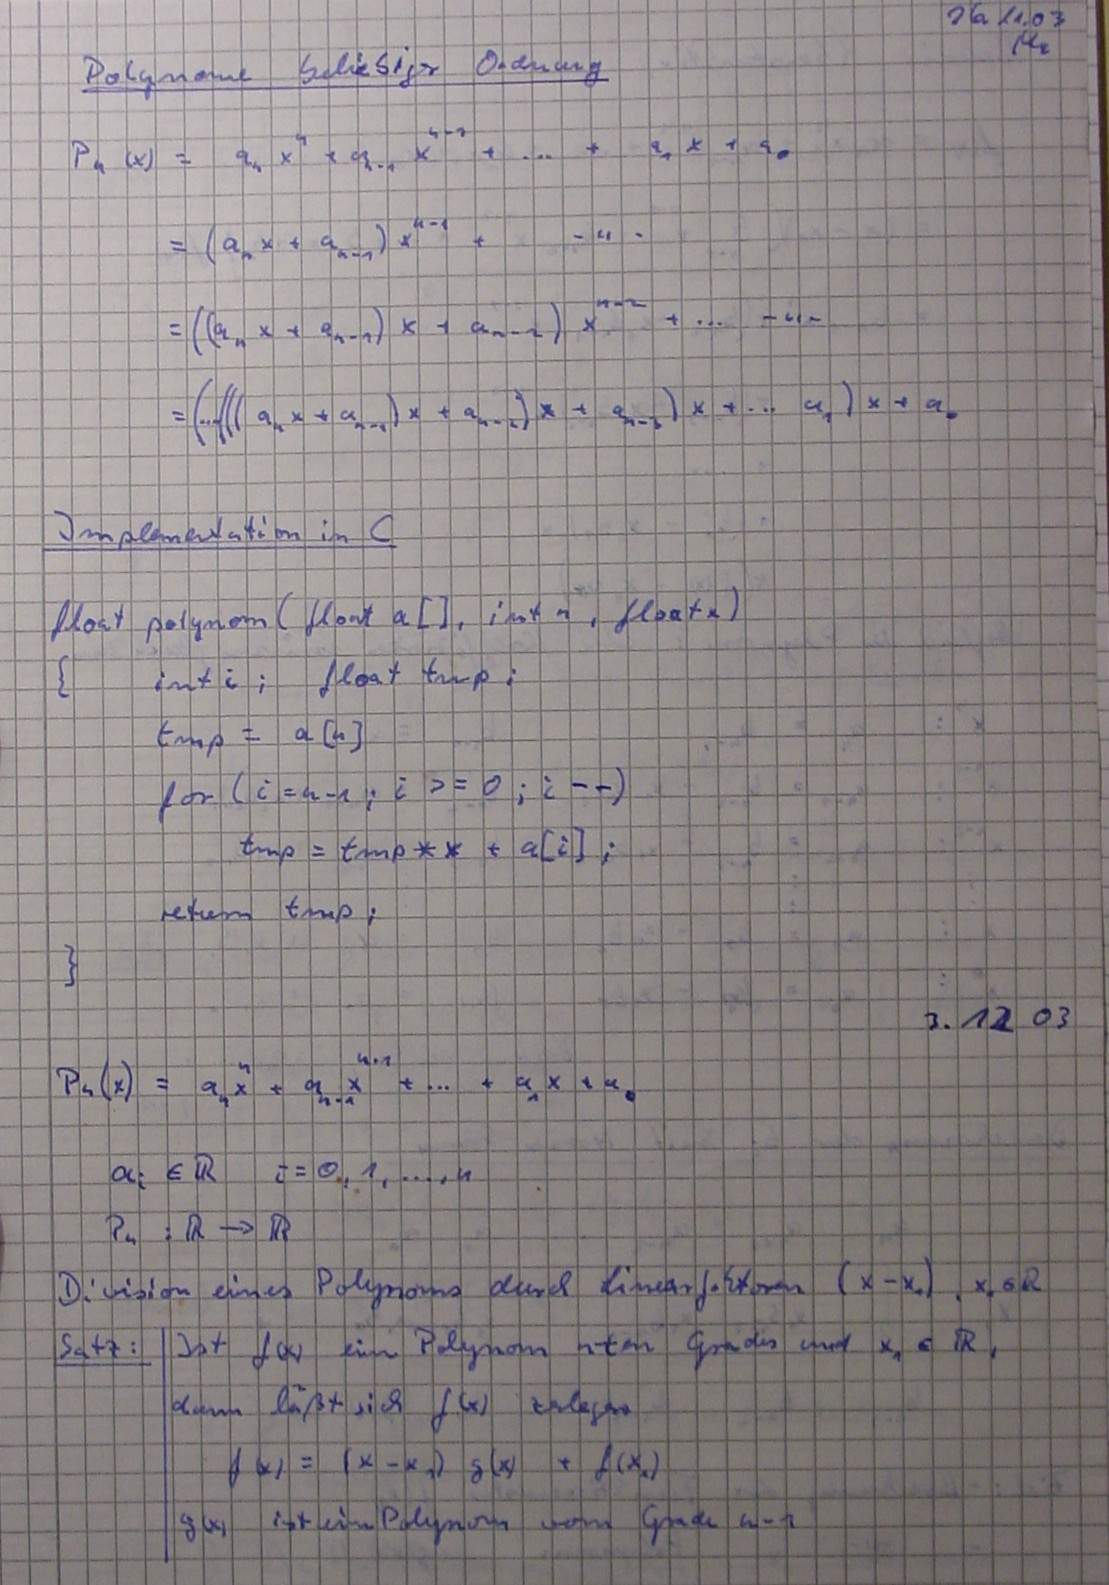 11.03
Polynome beliebiger Ordnung
Pₙ(x) = aₙ xⁿ + aₙ₋₁ xⁿ⁻¹ + ... + a₁ x + a₀
= (aₙ x + aₙ₋₁) xⁿ⁻¹ + -"-
= ((aₙ x + aₙ₋₁) x + aₙ₋₂) xⁿ⁻² + ... -"-
= (...(((aₙ x + aₙ₋₁) x + aₙ₋₂) x + aₙ₋₃) x + ... a₁) x + a₀
Implementation in C
float polynom( float a[], int n, float x)
{ int i; float tmp;
tmp = a[n]
for (i=n-1; i >= 0; i--)
tmp = tmp*x + a[i];
return tmp;
}
3.12 03
Pₙ(x) = aₙxⁿ + aₙ₋₁xⁿ⁻¹ + ... + a₁x + a₀
aᵢ ∈ ℝ i = 0, 1, ..., n
Pₙ : ℝ → ℝ
Division eines Polynoms durch Linearfaktoren (x-x₁), x₁ ∈ ℝ
Satz: Ist f(x) ein Polynom nten Grades und x₁ ∈ ℝ,
dann läßt sich f(x) zerlegen
f(x) = (x-x₁) g(x) + f(x₁)
g(x) ist ein Polynom vom Grade n-1